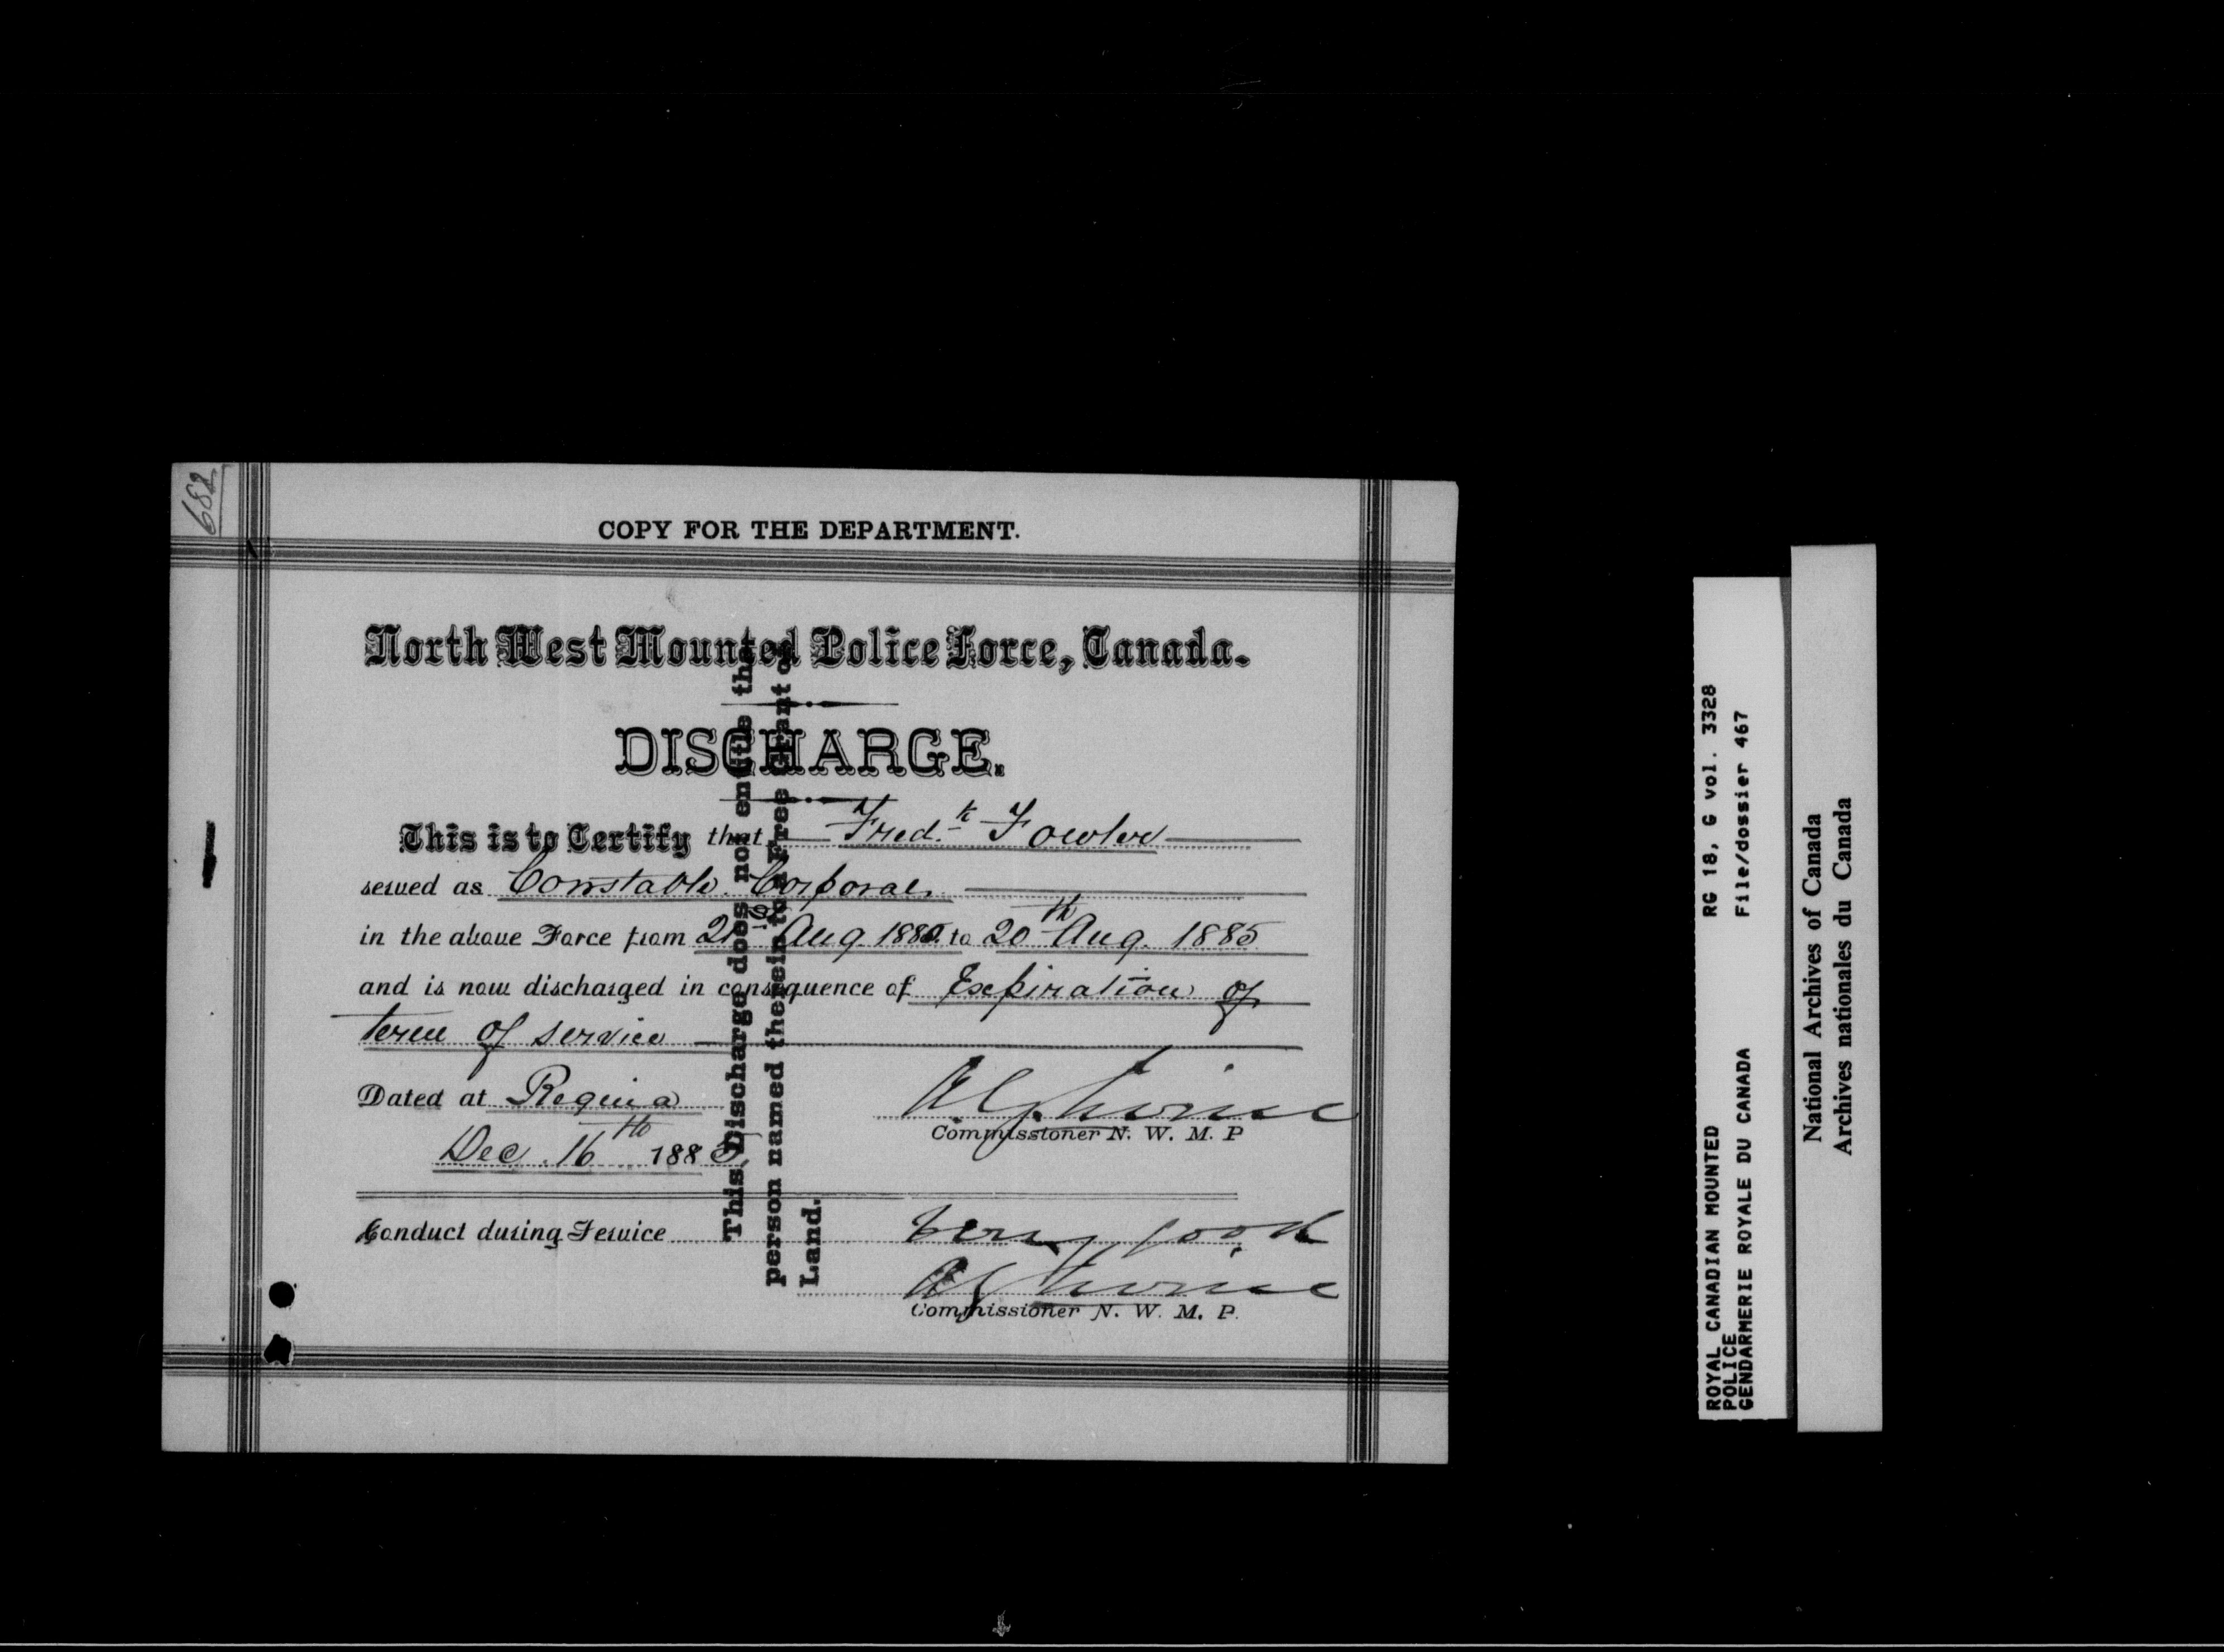 682
COPY FOR THE DEPARTMENT.
North West Mounted Police Force, Canada.
DISCHARGE.
This is to Certify that Fred.k Fowler
served as Constable. Corporal.
in the above Force from 21st Aug. 1880. to 20th Aug. 1885
and is now discharged in consequence of Expiration of
term of service
Dated at Regina
Dec. 16th 1885
Commissioner N. W. M. P
Conduct during Service very good
Commissioner N. W. M. P.
This Discharge does not entitle the
person named therein to a Free Grant of
Land.
ROYAL CANADIAN MOUNTED RG 18, G vol. 3328
POLICE
GENDARMERIE ROYALE DU CANADA File/dossier 467
National Archives of Canada
Archives nationales du Canada